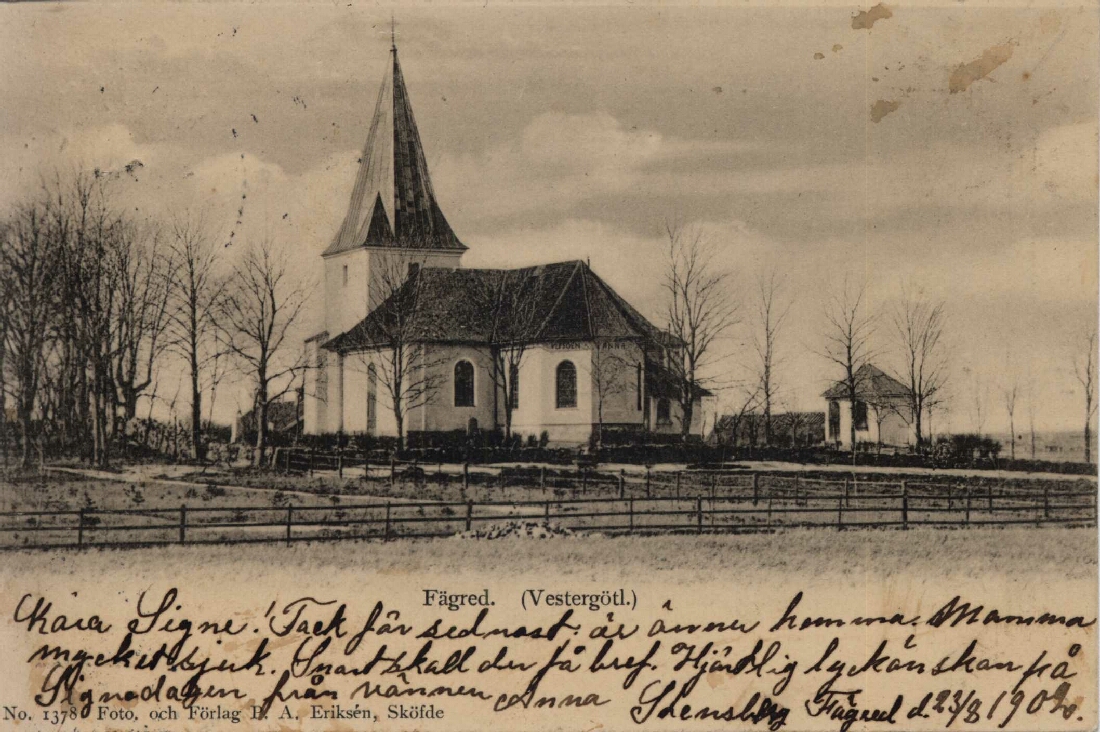 Fägred. (Vestergötl.)
Kära Signe! Tack för sednast. är ännu hemma. Mamma
mycket sjuk. Snart skall du få bref. Hjärtlig lyckönskan på
Signedagen från vännen Anna Fägred d. 23/8 1902.
No. 1378 Foto. och Förlag B. A. Eriksén, Sköfde